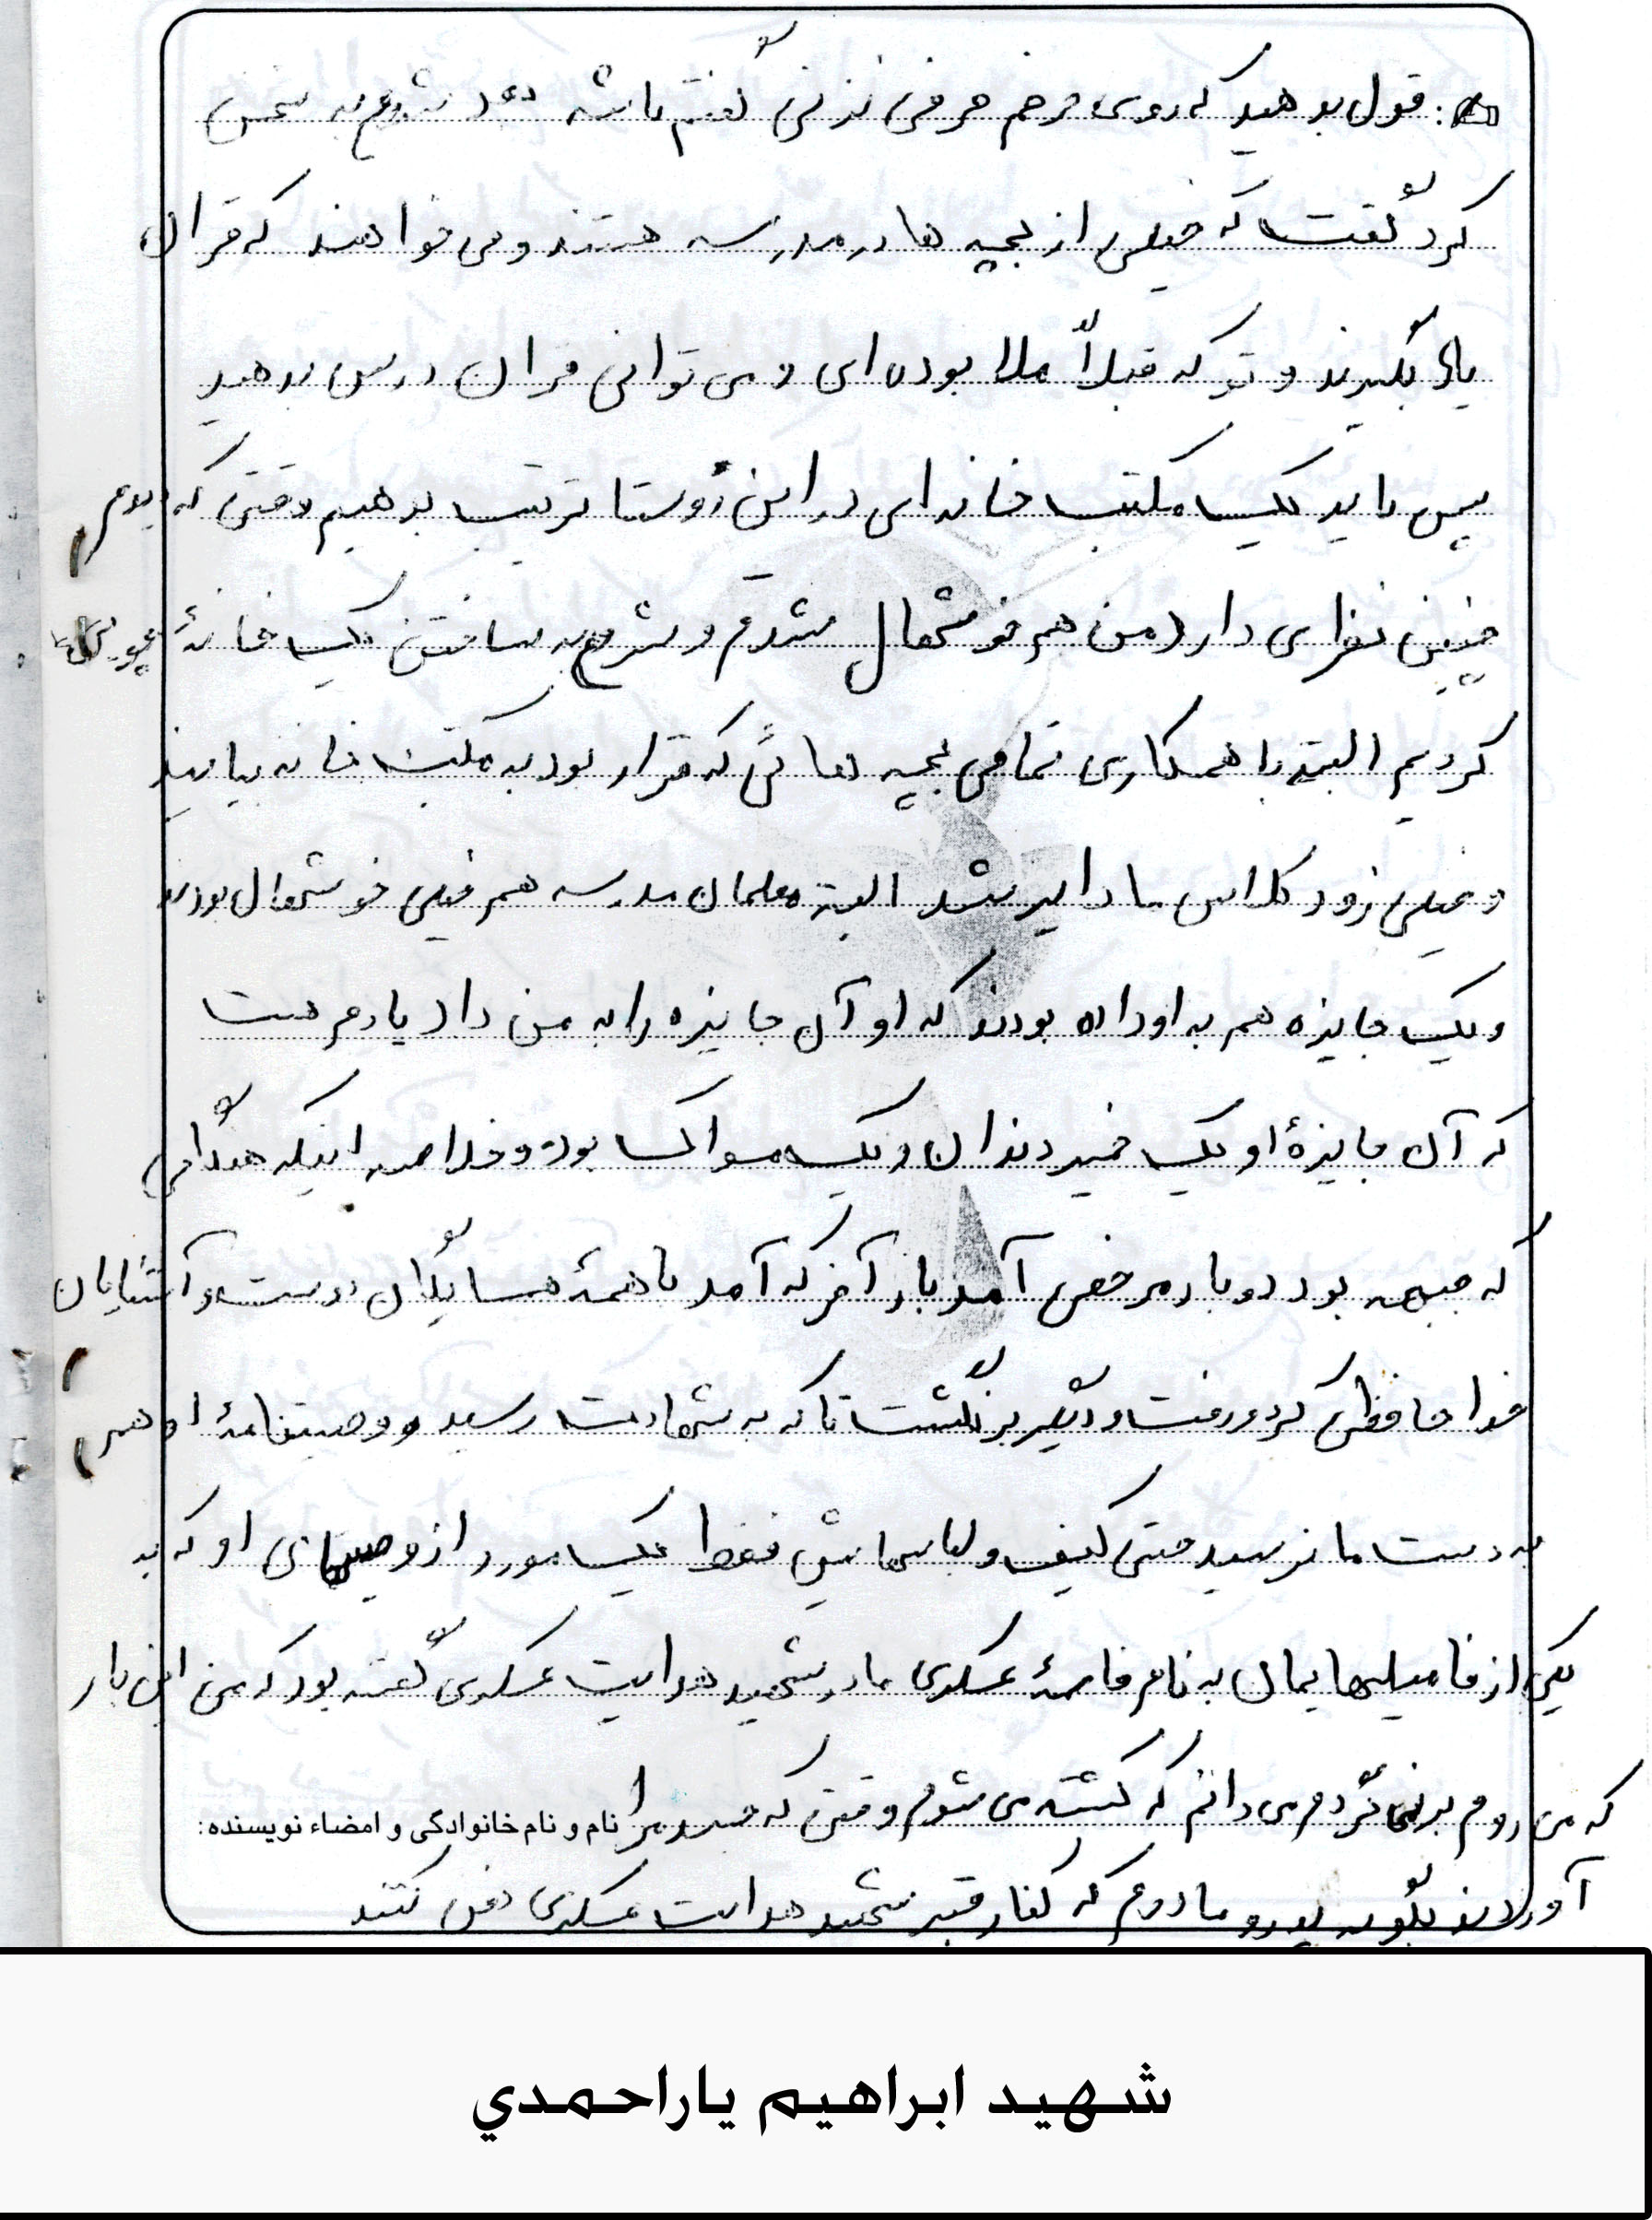 : قول بدهید که روی حرفم حرفی نزنی گفتم باشه بعد شروع به سخن
کرد گفت که خیلی از بچیه ها در مدرسه هستند و می خواهند که قران
یاد بگیرند و تو که قبلاً ملا بوده ای و می توانی قران درس بدهید
پس باید یک مکتب خانه ای در این روستا ترتیب بدهیم وقتی که دیدم
چنین نظرای دارد من هم خوشحال شدم و شروع به ساختن یک خانهٔ
کردیم البته با همکاری تمامی بچیه هائی که قرار بود به مکتب خانه بیایند
و خیلی زود کلاس ما دایر شد البته معلمان مدرسه هم خیلی خوشحال بودند
و یک جایزه هم به او داده بودند که او آن جایزه را به من داد یادم هست
که آن جایزهٔ او یک خمیر دندان و یک مسواک بود و خلاصه اینکه هنگامی
که جبهه بود دوباره مرخصی آمد بار آخر که آمد با همهٔ همسایگان دوست و آشنایان
خداحافظی کرد و رفت و دیگر برنگشت تا که به شهادت رسید و وصیتنامهٔ او هم
به دست ما نرسید حتی کیف و لباسهایش فقط یک مورد از وصیتهای او که به
یکی از فامیلهایمان به نام فاطمهٔ عسکری مادر شهید هدایت عسکری گفته بود که من این بار
که می روم برنمی گردم می دانم که کشته می شوم وقتی که جسد مرا
نام و نام خانوادگی و امضاء نویسنده:
آوردند بگو به پدر و مادرم که کنار قبر شهید هدایت عسکری دفن کنند
شهید ابراهیم یاراحمدي